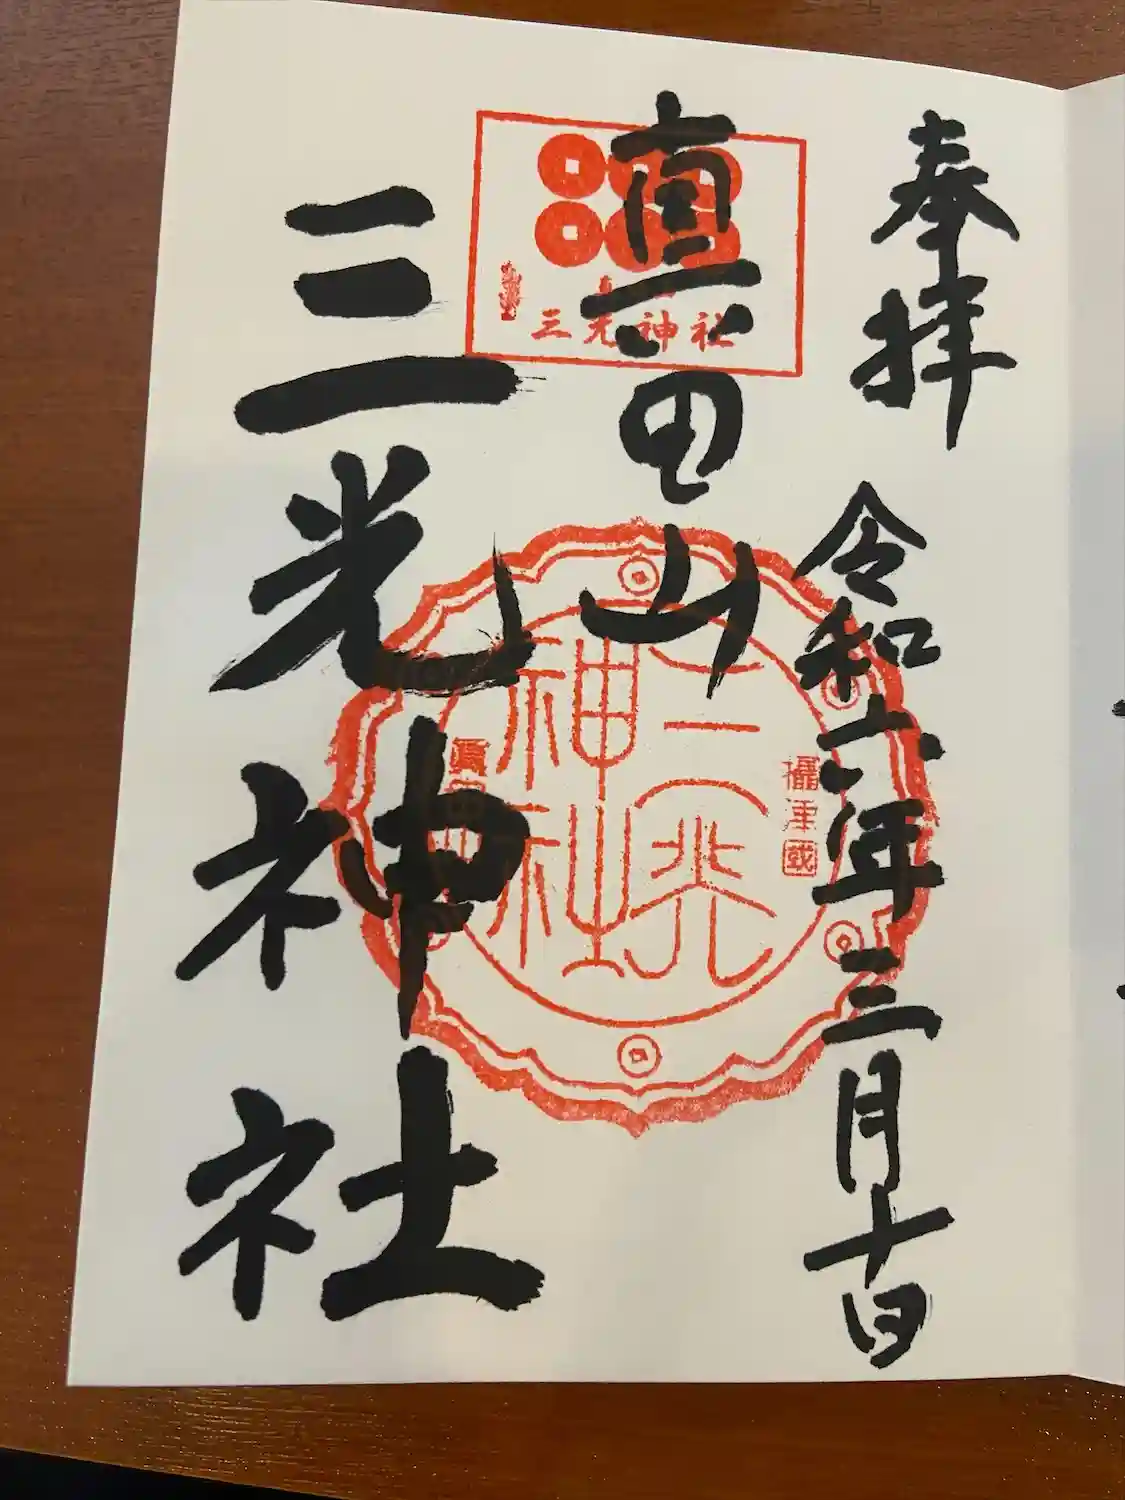 奉拝 令和六年三月十日
真田山
三光神社
三光神社
攝津國
三光
神社